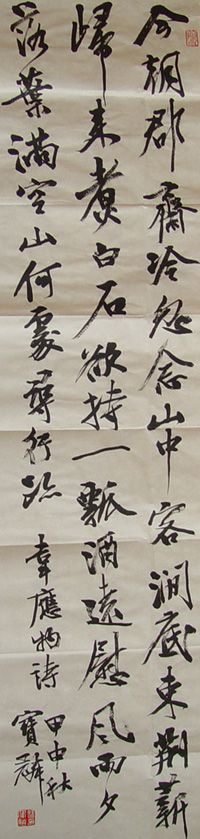 今朝郡齋冷忽念山中客澗底束荊薪
歸來煮白石欲持一瓢酒遠慰風雨夕
落葉滿空山何處尋行跡
韋應物詩
甲申秋
寶